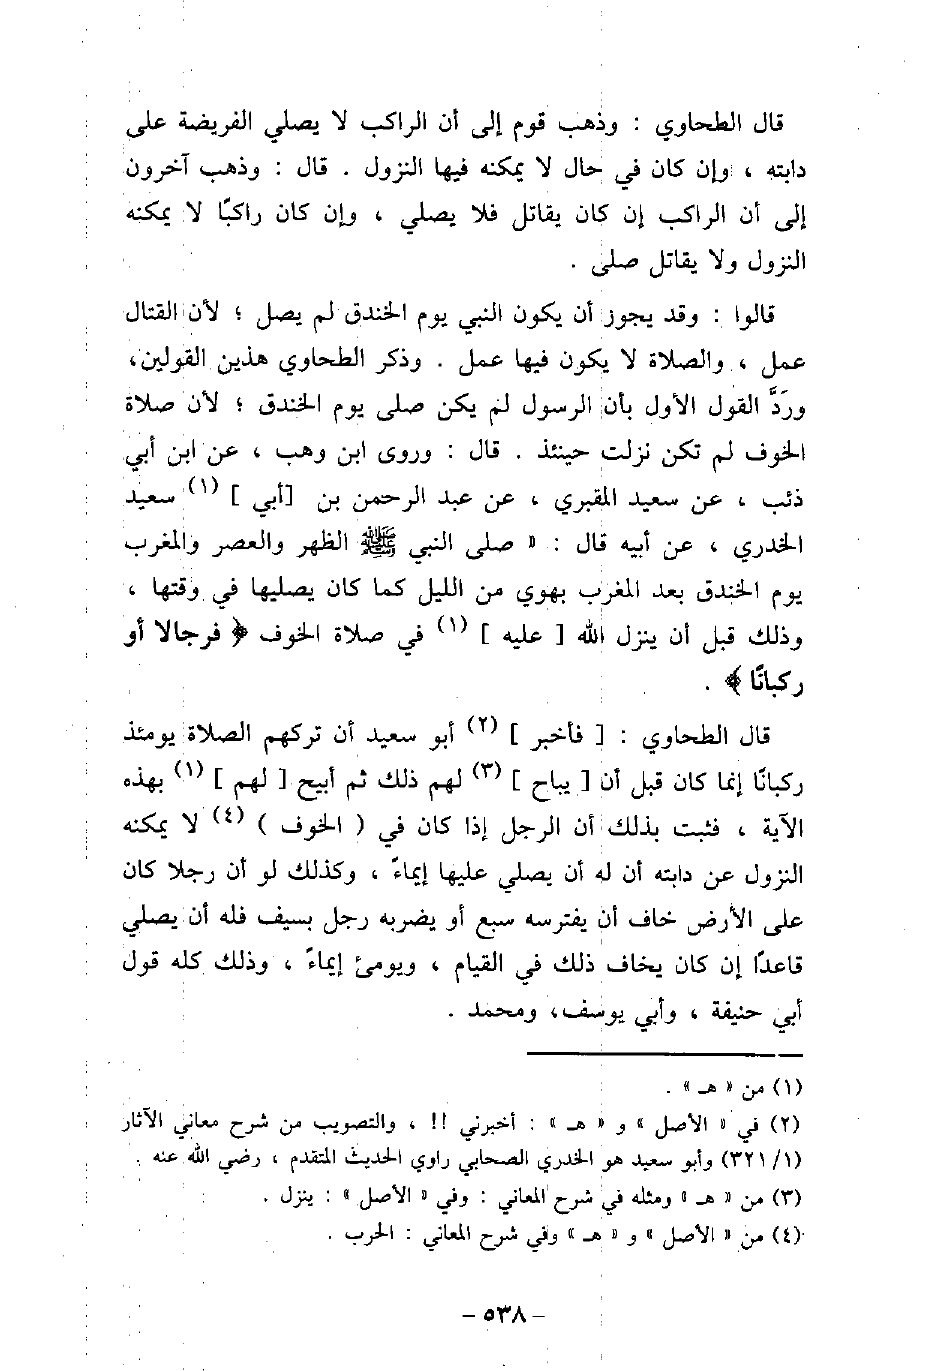 قال الطحاوي : وذهب قوم إلى أن الراكب لا يصلي الفريضة على
دابته ، وإن كان في حال لا يمكنه فيها النزول . قال : وذهب آخرون
إلى أن الراكب إن كان يقاتل فلا يصلي ، وإن كان راكبًا لا يمكنه
النزول ولا يقاتل صلى .
قالوا : وقد يجوز أن يكون النبي يوم الخندق لم يصل ؛ لأن القتال
عمل ، والصلاة لا يكون فيها عمل . وذكر الطحاوي هذين القولين،
وردَّ القول الأول بأن الرسول لم يكن صلى يوم الخندق ؛ لأن صلاة
الخوف لم تكن نزلت حينئذ . قال : وروى ابن وهب ، عن ابن أبي
ذئب ، عن سعيد المقبري ، عن عبد الرحمن بن [أبي ] (١) سعيد
الخدري ، عن أبيه قال : « صلى النبي ﷺ الظهر والعصر والمغرب
يوم الخندق بعد المغرب بهوي من الليل كما كان يصليها في وقتها ،
وذلك قبل أن ينزل الله [ عليه ] (١) في صلاة الخوف ﴿ فرجالا أو
ركبانًا ﴾ .
قال الطحاوي : [ فأخبر ] (٢) أبو سعيد أن تركهم الصلاة يومئذ
ركبانًا إنما كان قبل أن [ يباح ] (٣) لهم ذلك ثم أبيح [ لهم ] (١) بهذه
الآية ، فثبت بذلك أن الرجل إذا كان في ( الخوف ) (٤) لا يمكنه
النزول عن دابته أن له أن يصلي عليها إيماءً ، وكذلك لو أن رجلا كان
على الأرض خاف أن يفترسه سبع أو يضربه رجل بسيف فله أن يصلي
قاعدًا إن كان يخاف ذلك في القيام ، ويومئ إيماءً ، وذلك كله قول
أبي حنيفة ، وأبي يوسف، ومحمد .
(١) من « هـ » .
(٢) في « الأصل » و « هـ » : أخبرني !! ، والتصويب من شرح معاني الآثار
(٣٢١/١) وأبو سعيد هو الخدري الصحابي راوي الحديث المتقدم ، رضي الله عنه .
(٣) من « هـ » ومثله في شرح المعاني : وفي « الأصل » : ينزل .
(٤) من « الأصل » و « هـ » وفي شرح المعاني : الحرب .
- ٥٣٨ -